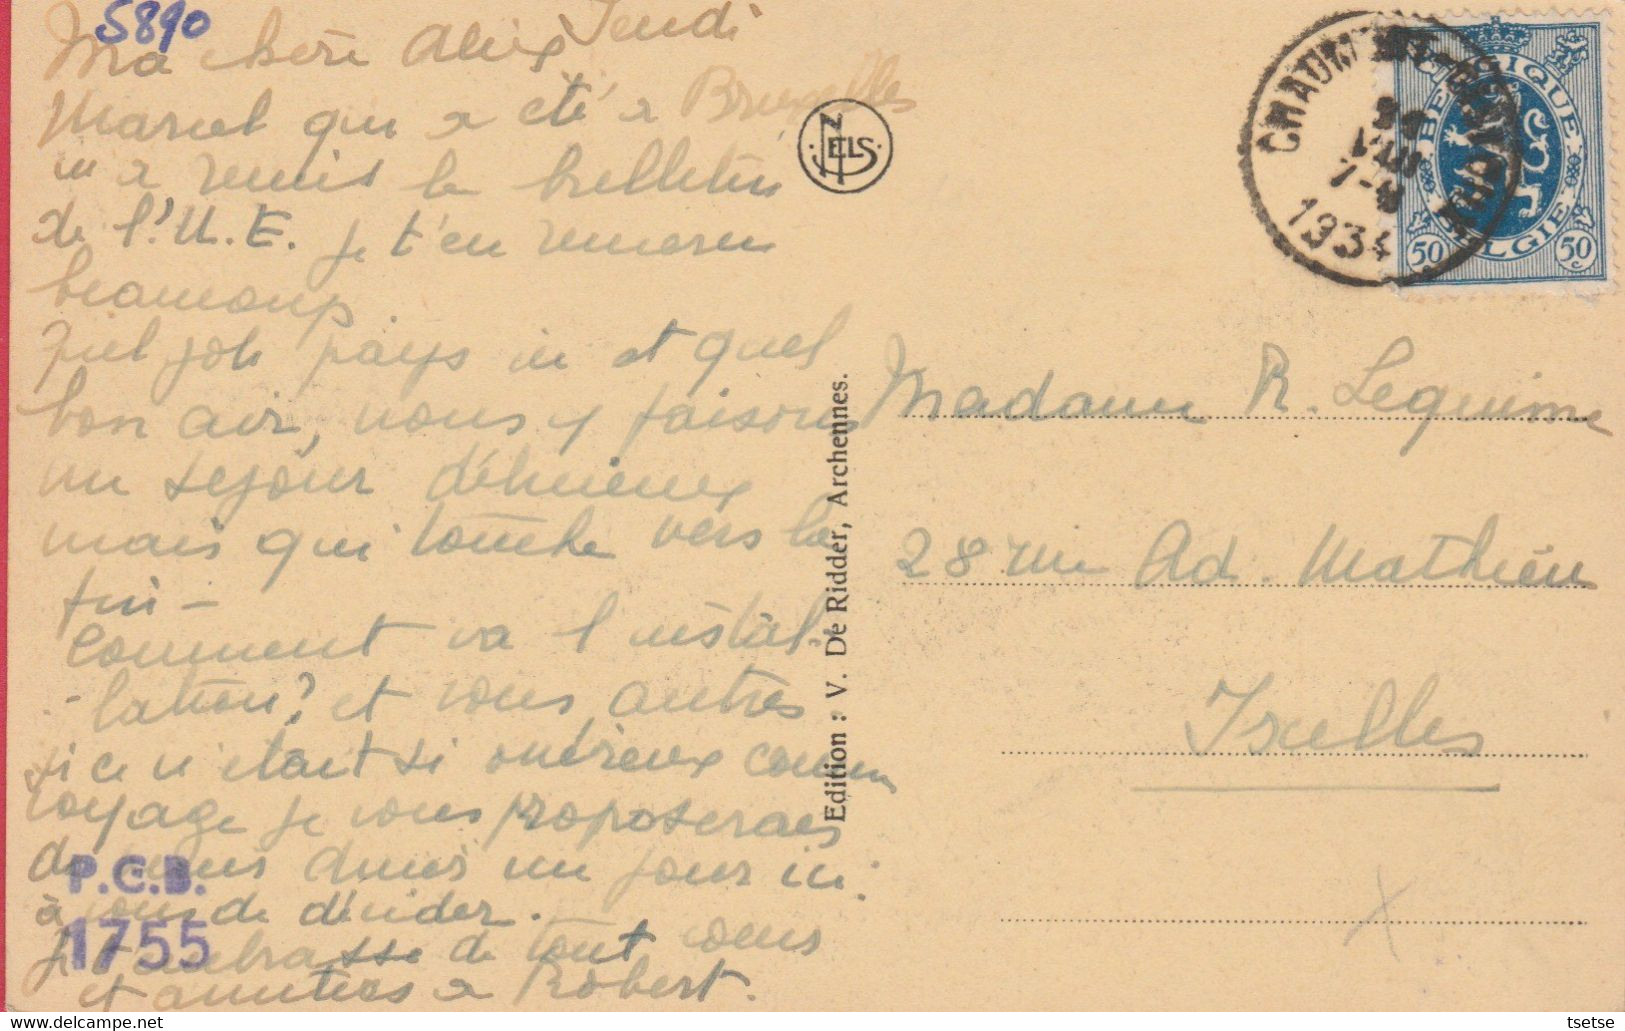 5890
Jeudi
Ma chère Alice
Marcel qui a été à Bruxelles
m'a remis le bulletin
de l'U.E. je t'en remercie
beaucoup
Quel joli pays ici et quel
bon air, nous y faisons
un séjour délicieux
mais qui touche vers la
fin -
Comment va l'instal-
-lation? et vous autres
si ce n'était si onéreux comme
voyage je vous proposerais
de vous dunir un jour ici.
à vous de décider.
Je t'embrasse de tout coeur
et amitiés à Robert.
P.C.B.
1755
NELS
Edition : V. De Ridder, Archennes.
CHAUM
VIII
7-8
1934
BELGIQUE
BELGIE
50 50
Madame R. Lequime
28 rue Ad. Mathieu
Ixelles
tsetse